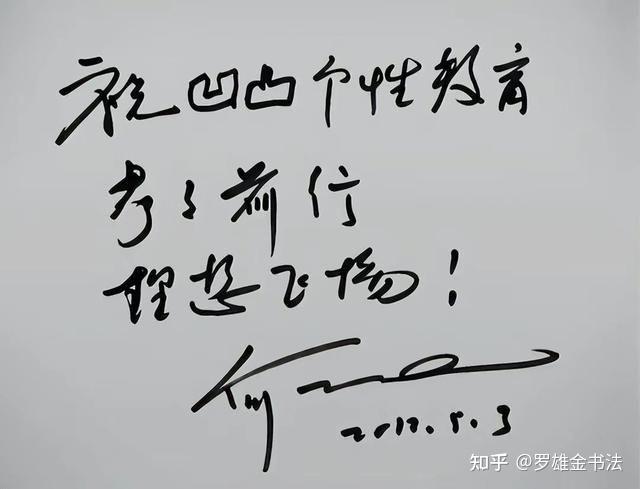 祝凹凸个性教育
前行
理想飞扬！
2017.5.3
知乎 @罗雄金书法